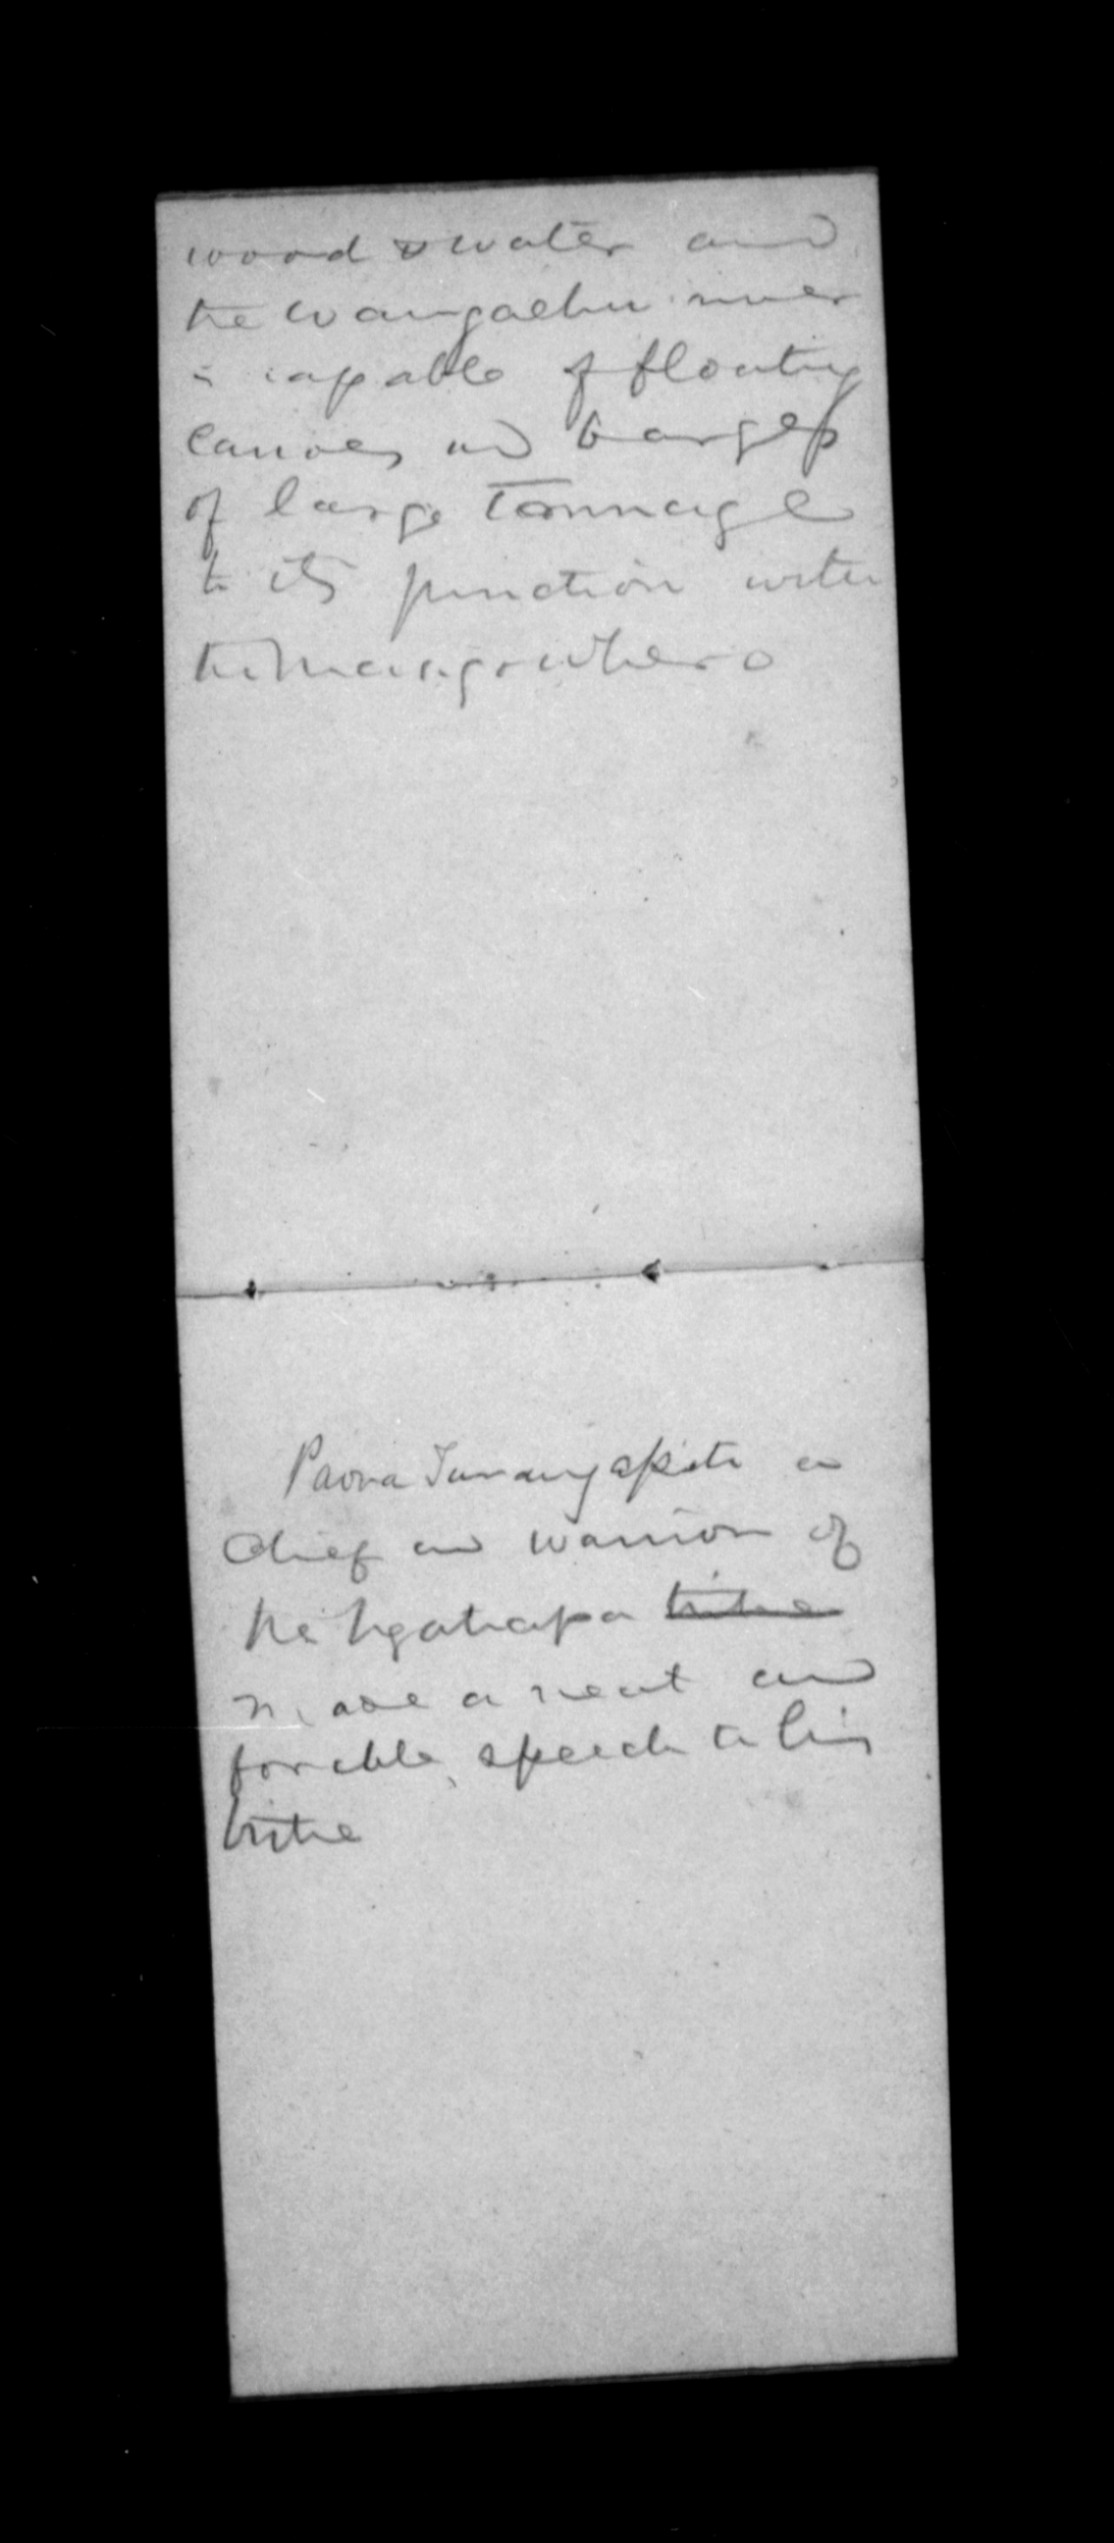 wood & water and
the Wangaehu river
is capable of floating
canoes and barges
of large Tonnage
to its junction with
the Mangawhero
Paora Turangapito a
chief and warrior of
the Ngatiapa tribe
made a neat and
forcible speech to his
tribe